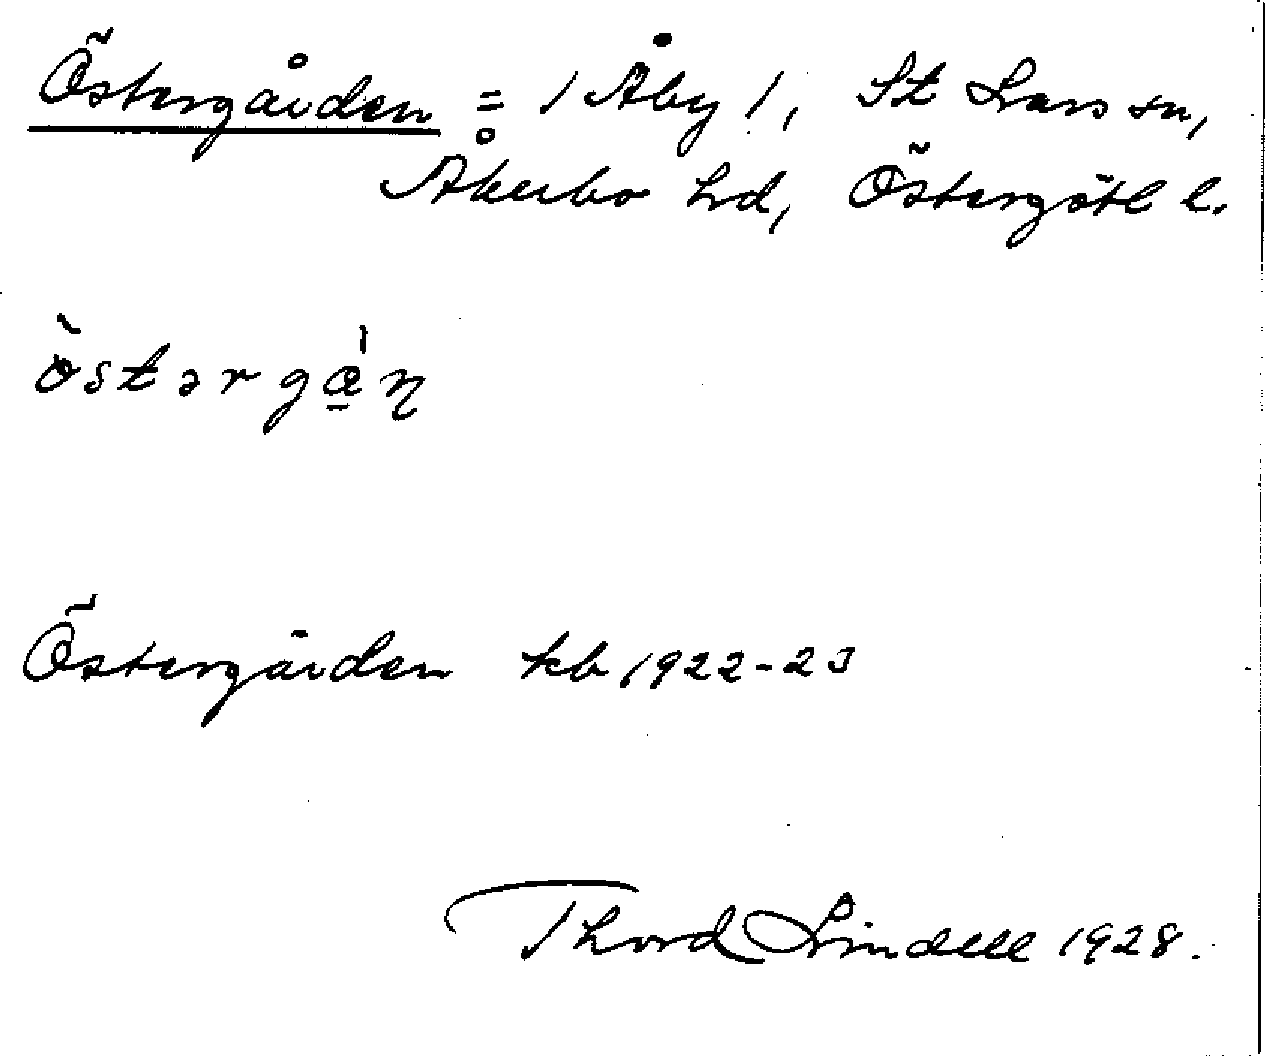 Östergården = / Åby /, St Lars sn,
Åkerbo hd, Östergötl l.
Östergården kb 1922-23
Thord Lindell 1928.